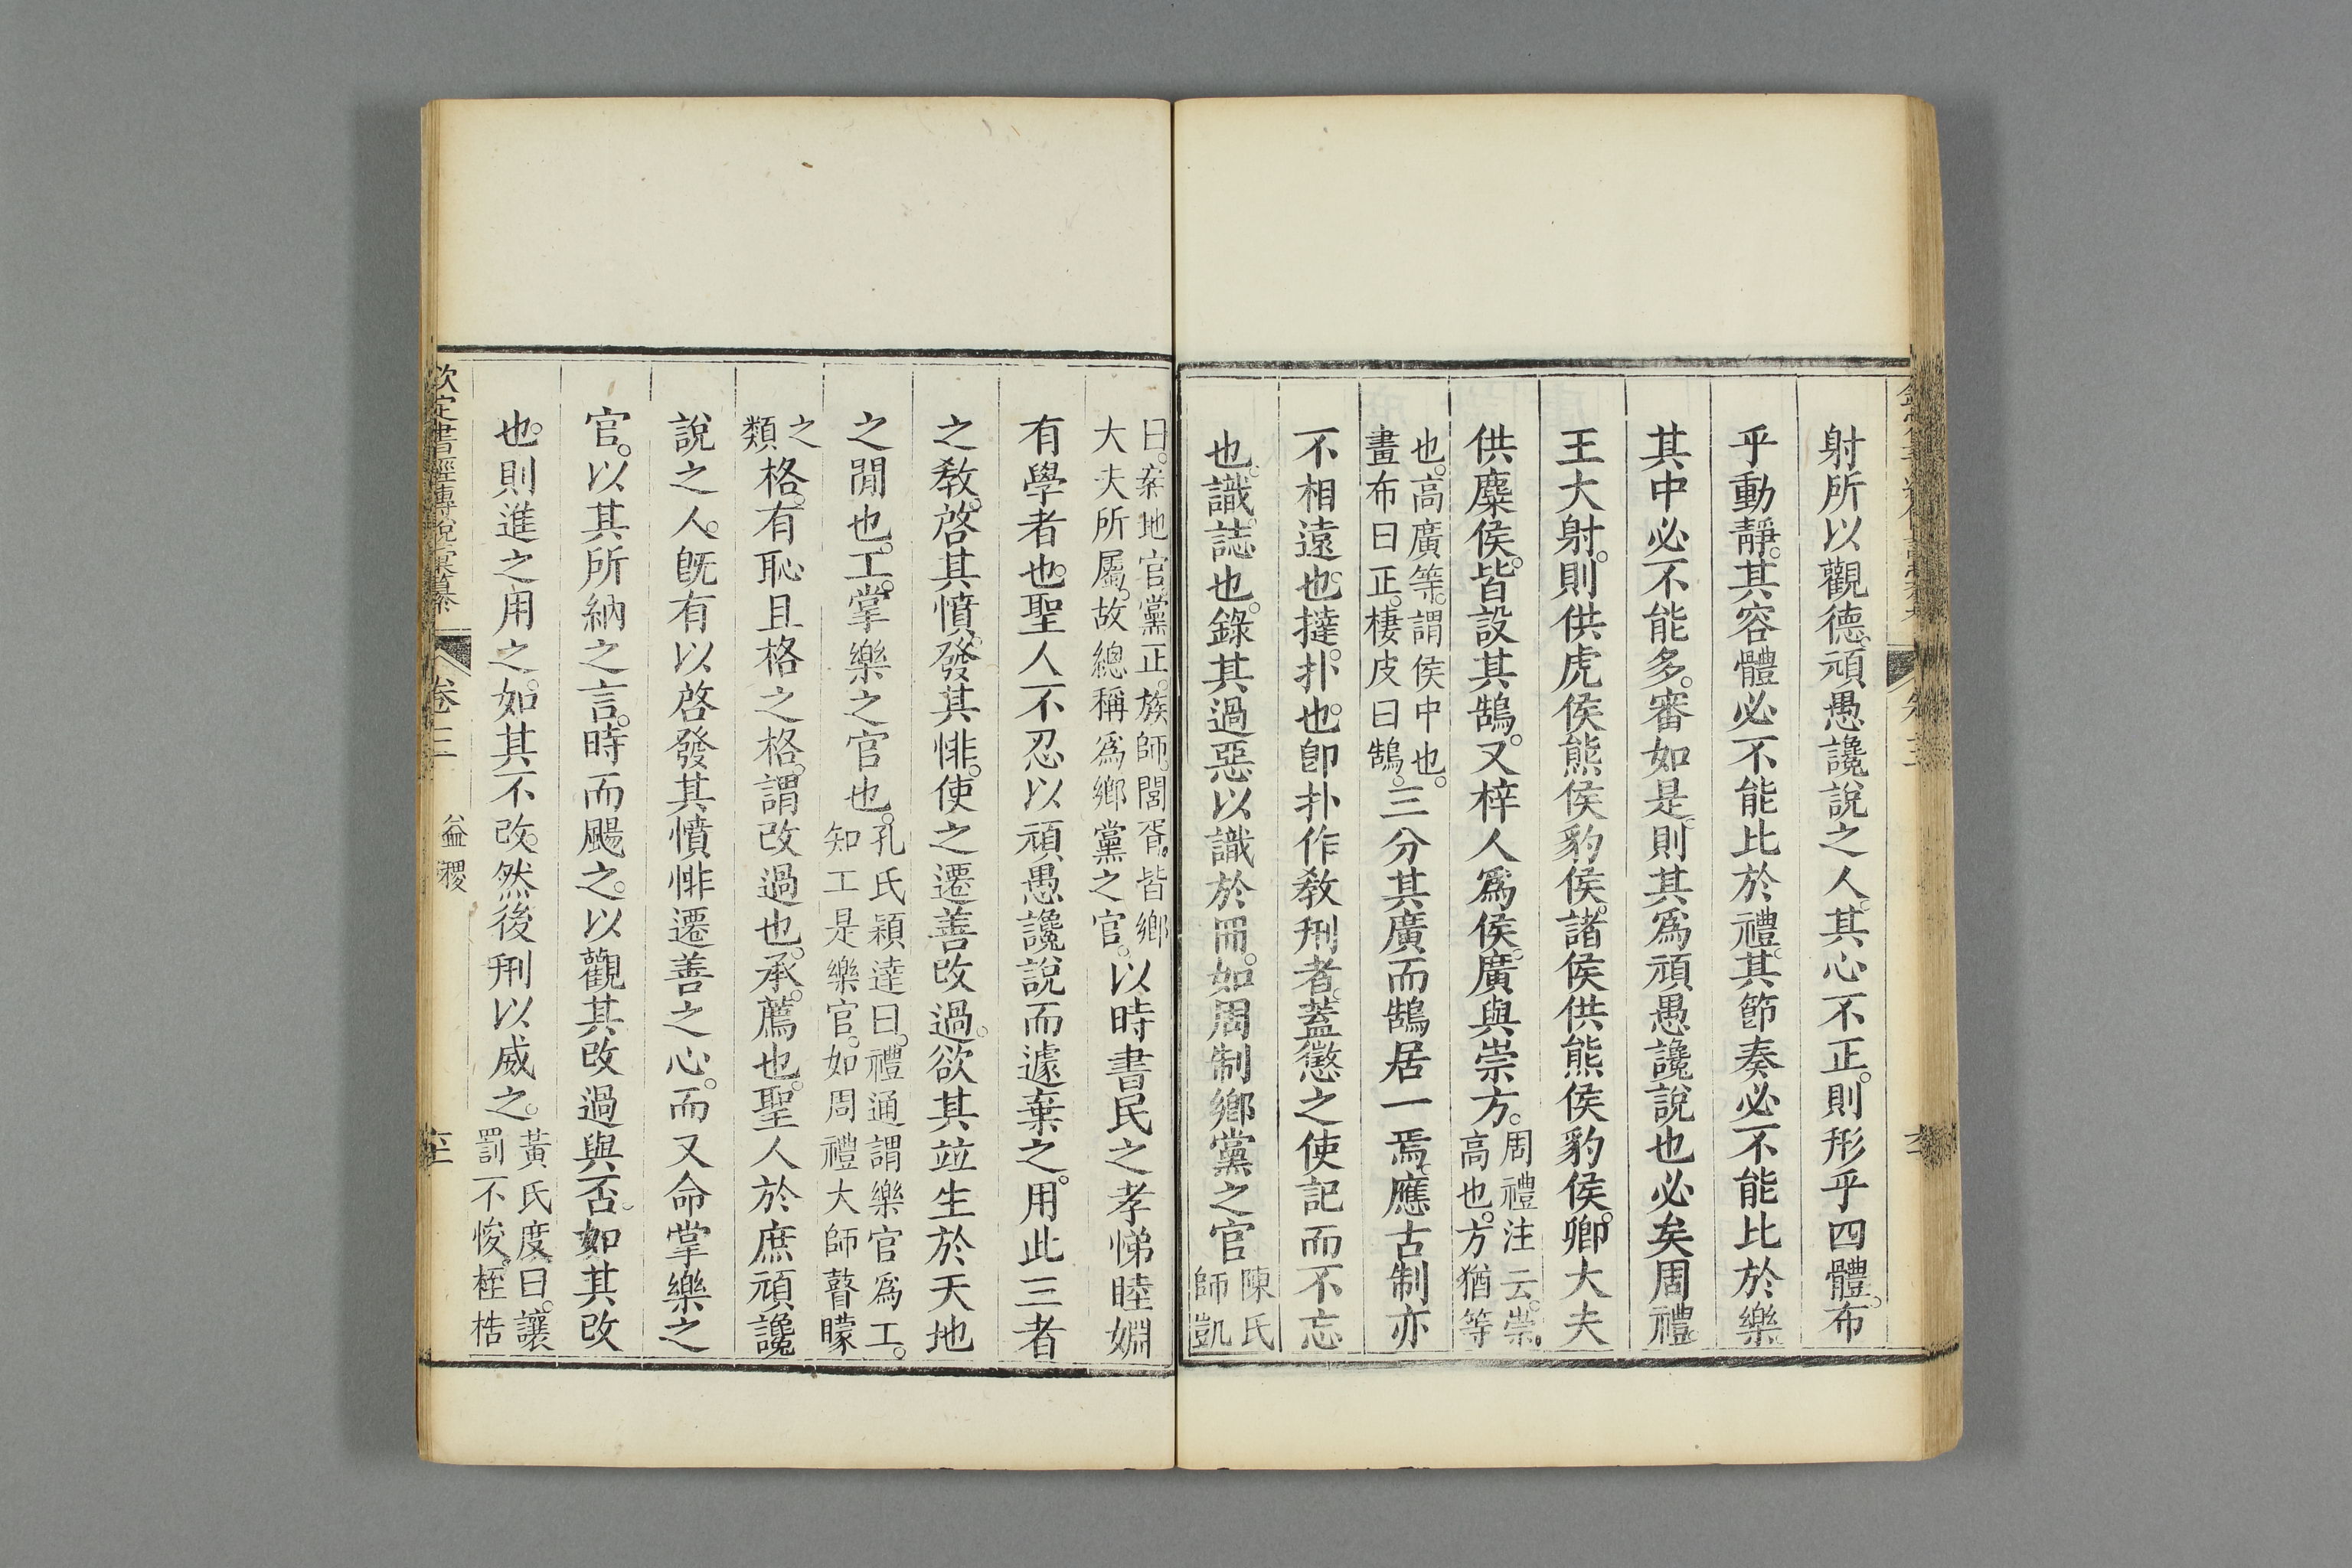 射所以觀德。頑愚讒說之人。其心不正。則形乎四體。布
乎動靜。其容體必不能比於禮。其節奏必不能比於樂。
其中必不能多。審如是。則其爲頑愚讒說也必矣周禮。
王大射。則供虎侯熊侯豹侯。諸侯供熊侯豹侯。卿大夫
供麋侯。皆設其鵠。又梓人爲侯。廣與崇方。周禮注云。崇。高也。方猶等
也。高廣等。謂侯中也。畫布曰正。棲皮曰鵠。三分其廣而鵠居一焉。應古制亦
不相遠也。撻。扑也。卽扑作敎𠛬者。蓋懲之使記而不忘
也。識。誌也。錄其過惡以識於冊。如周制鄉黨之官陳氏師凱
曰。案地官。黨正。族師。閭胥。皆鄉大夫所屬。故總稱爲鄉黨之官。以時書民之孝悌睦婣
有學者也。聖人不忍以頑愚讒說而遽棄之。用此三者
之敎。啓其憤。發其悱。使之遷善改過。欲其竝生於天地
之閒也。工。掌樂之官也。孔氏穎達曰。禮通謂樂官爲工。知工是樂官。如周禮大師瞽矇
之類格。有恥且格之格。謂改過也。承。薦也。聖人於庶頑讒
說之人。旣有以啓發其憤悱遷善之心。而又命掌樂之
官。以其所納之言。時而颺之。以觀其改過與否。如其改
也。則進之用之。如其不改。然後𠛬以威之。黃氏度曰。讓罰不悛。桎梏
欽定書經傳說彙纂 卷三 益稷